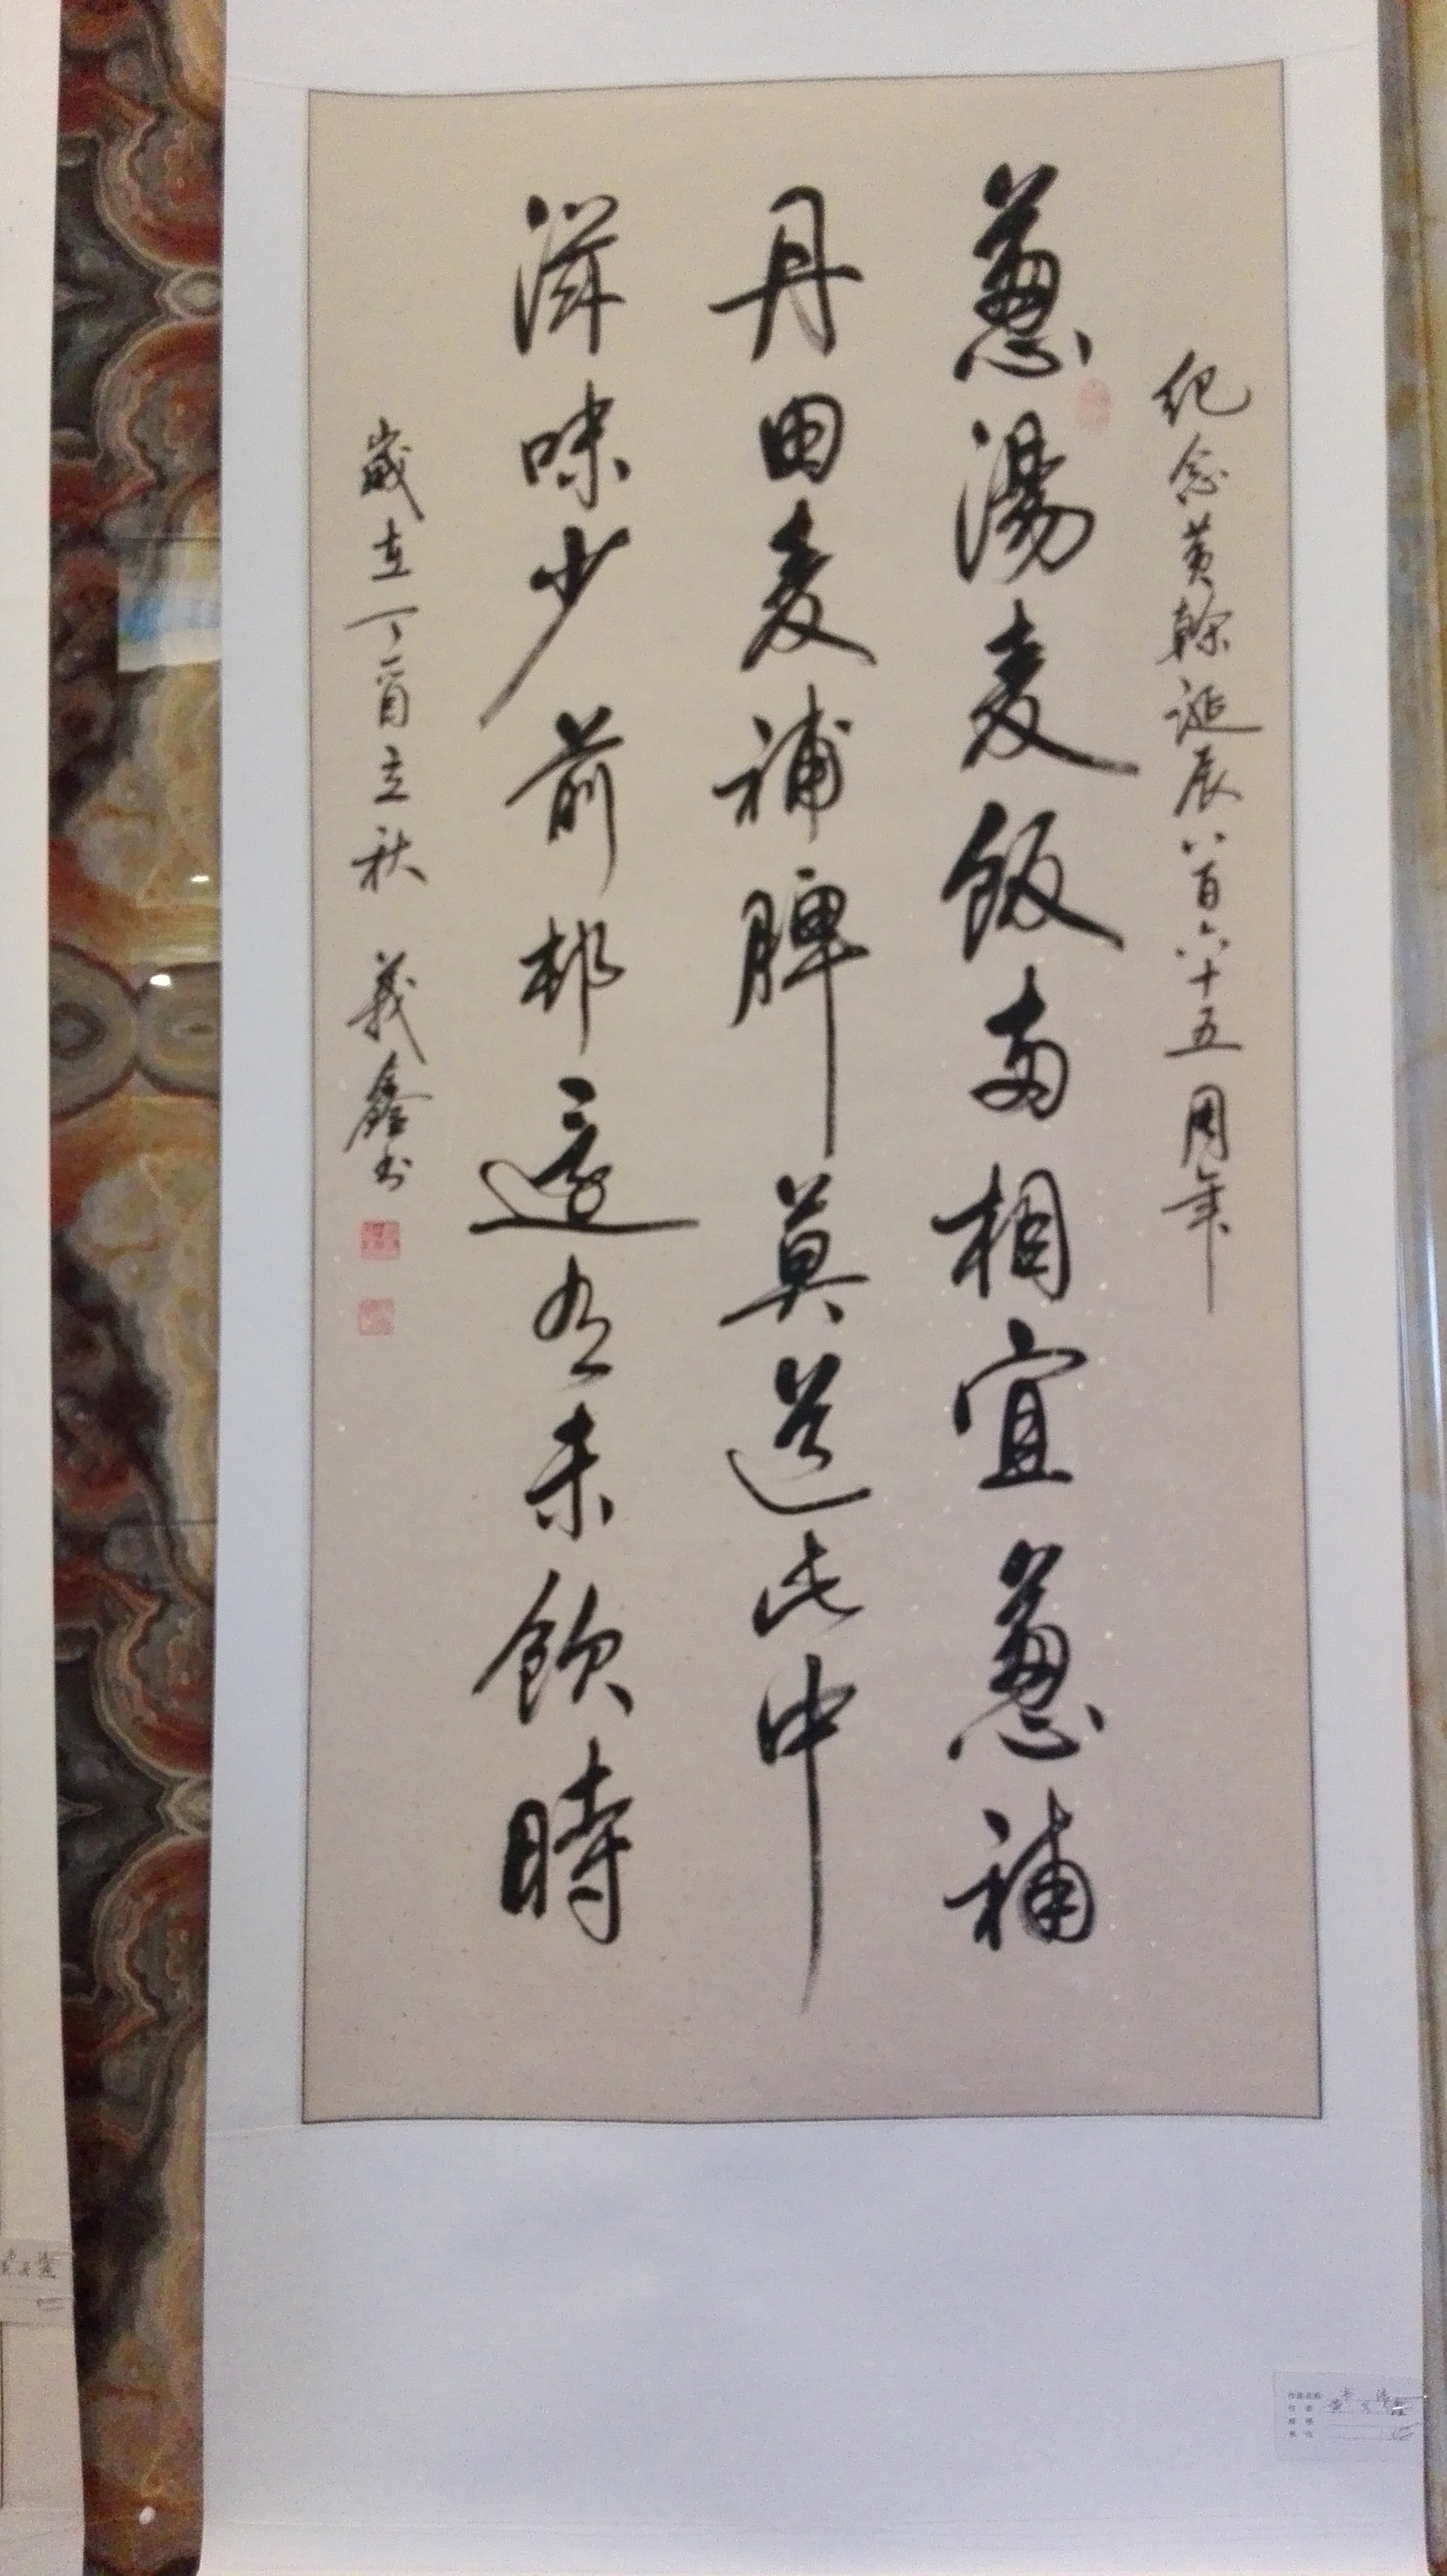 紀念黃榦誕辰八百六十五周年
蔥湯麦飯両相宜蔥補
丹田麦補脾莫道此中
滋味少前邨還有未飲時
歲在丁酉立秋 義鑫书